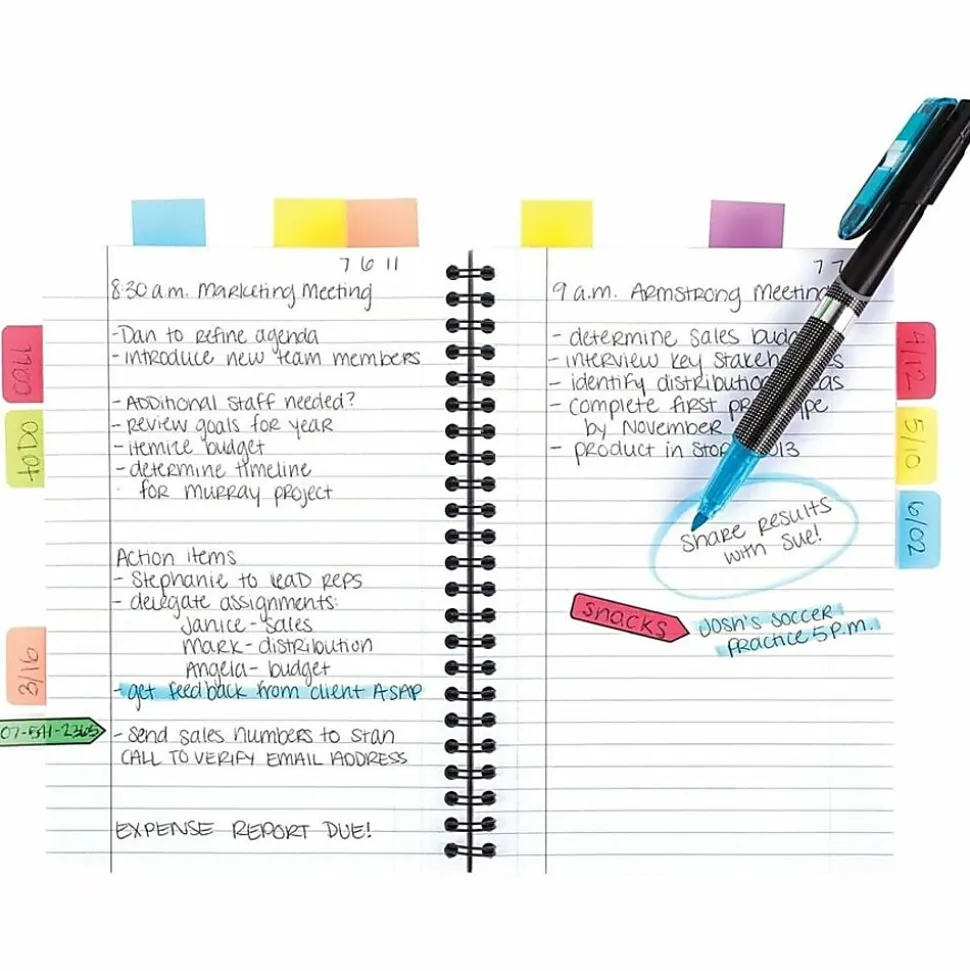 7 6 11
8:30 a.m. Marketing Meeting
-Dan to refine agenda
-introduce new team members
-Additional staff needed?
-review goals for year
-itemize budget
-determine timeline
for Murray project
Action items
- Stephanie to lead reps
- delegate assignments:
Janice-sales
Mark-distribution
Angela-budget
-get feedback from client ASAP
-send sales numbers to Stan
CALL TO VERIFY EMAIL ADDRESS
EXPENSE REPORT DUE!
call
to DO
3/16
7 7
9 a.m. Armstrong Meeting
- determine sales
- interview key
- identify
- complete first
by November
- product in
Share results
with Sue!
snacks
Josh's soccer
Practice 5 P.m.
4/12
5/10
6/02